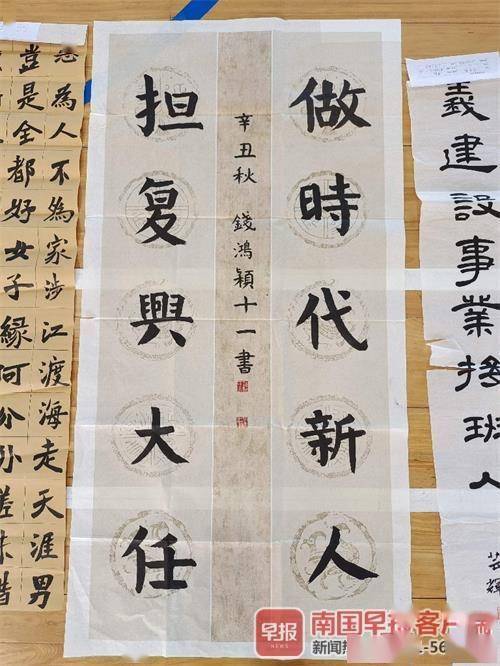 做時代新人
担复興大任
辛丑秋 錢鴻穎十一書
義建設事業接班人
為人不為家涉江渡海走天涯男
豈是全都好女子緣何分外
早报
南国早报客户
新闻